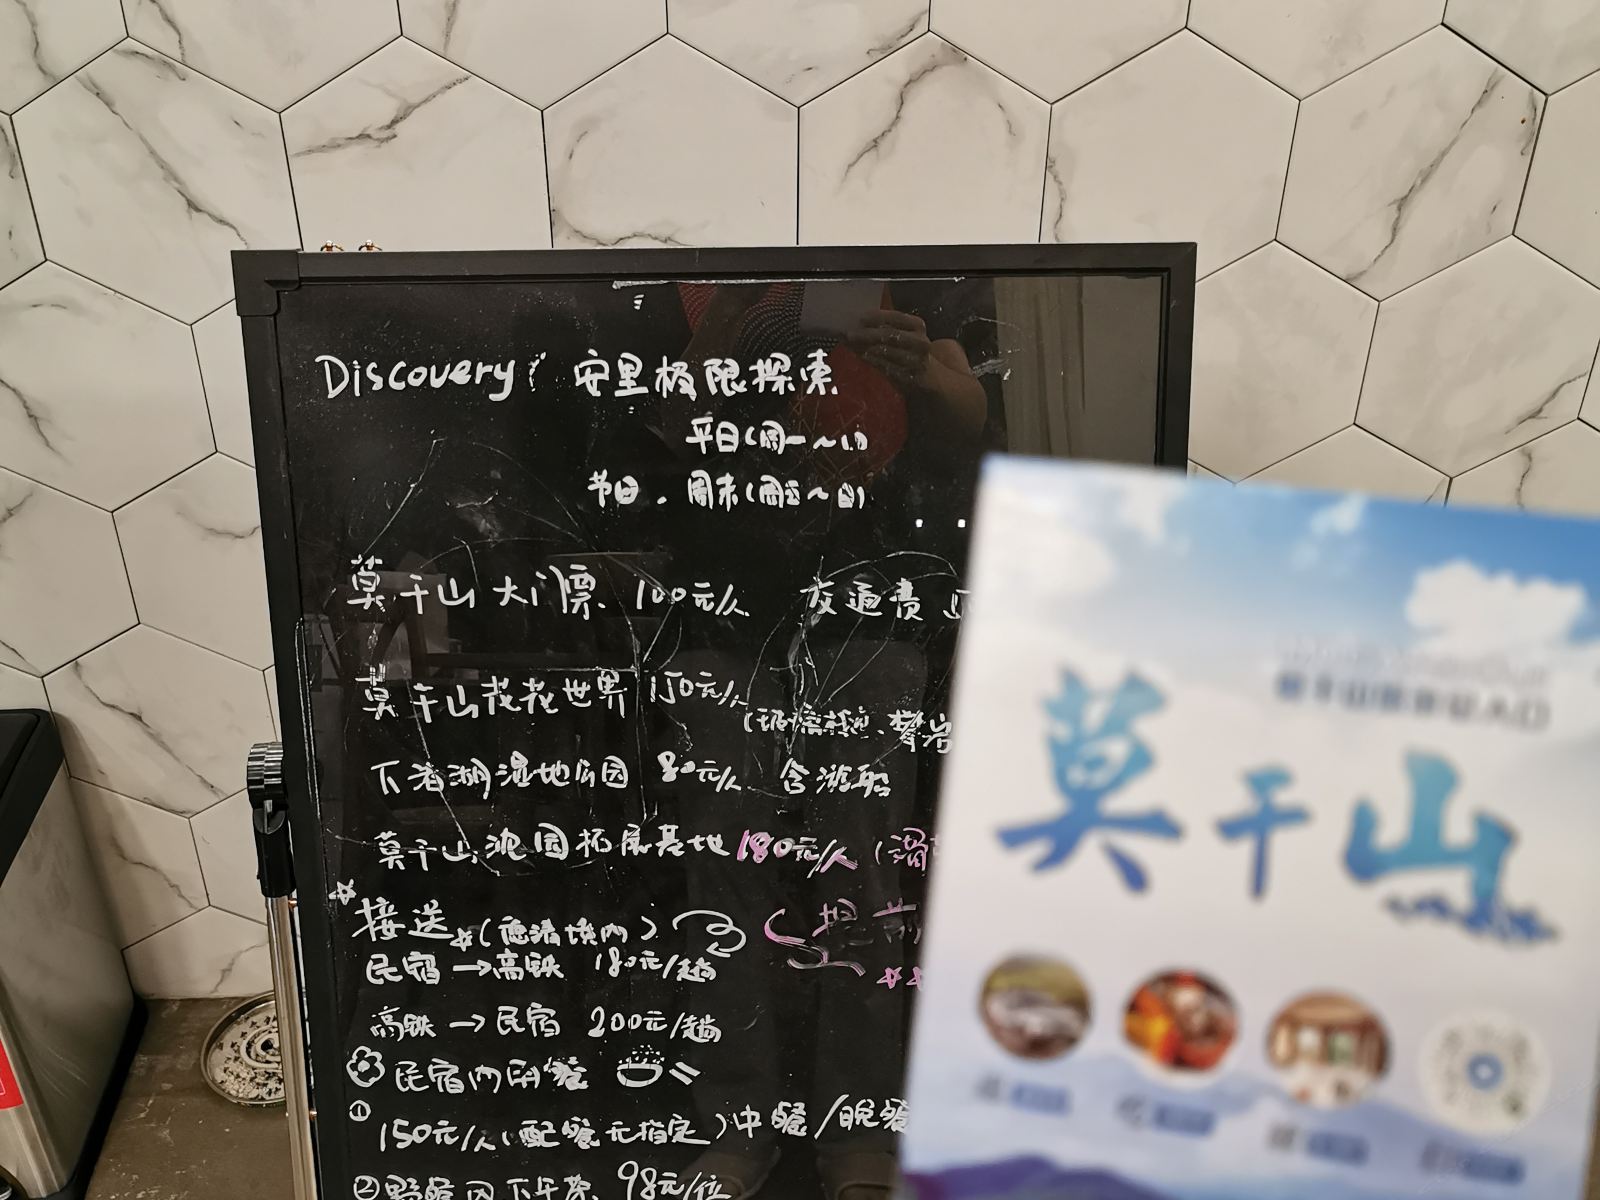 Discovery 安里极限探索
平日(周一~
节日、周末(周五~日)
莫干山大门票 100元/人 交通费
莫干山花花世界 150元/人
(玻璃栈道、攀岩
下渚湖湿地公园 80元/人 含游船
莫干山沈园拓展基地 180元/人 (滑
接送 (德清境内) 提前
民宿→高铁 180元/趟
高铁→民宿 200元/趟
民宿内用餐
① 150元/人(配餐无指定)中餐/晚餐
②野餐风下午茶 98元/位
莫干山